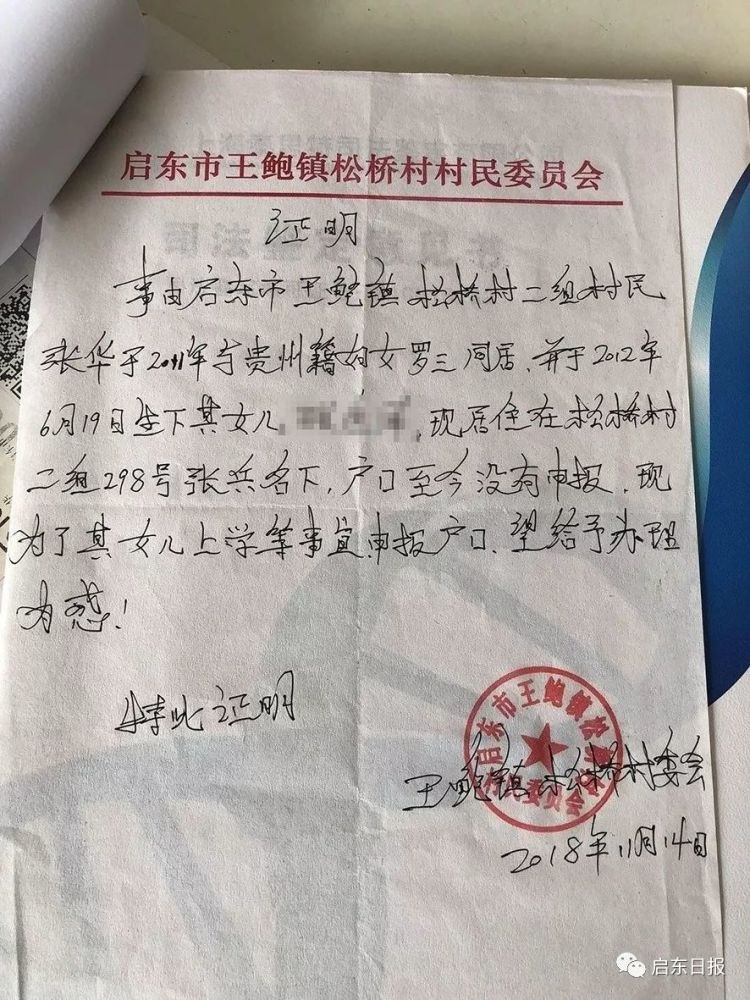 启东市王鲍镇松桥村村民委员会
证明
事由启东市王鲍镇松桥村二组村民
张华于2011年与贵州籍妇女罗三同居、并于2012年
6月19日生下其女儿 ,现居住在松桥村
二组298号张兵名下,户口至今没有申报,现
为了其女儿上学等事宜申报户口、望给予办理
为感!
特此证明
启东市王鲍镇松桥村村民委员会
王鲍镇松桥村委会
2018年11月14日
启东日报